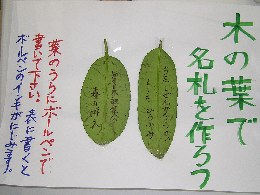 木の葉で
名札を作ろう
葉のうらにボールペンで
書いて下さい。表に書くと
ボールペンのインキがにじみます。